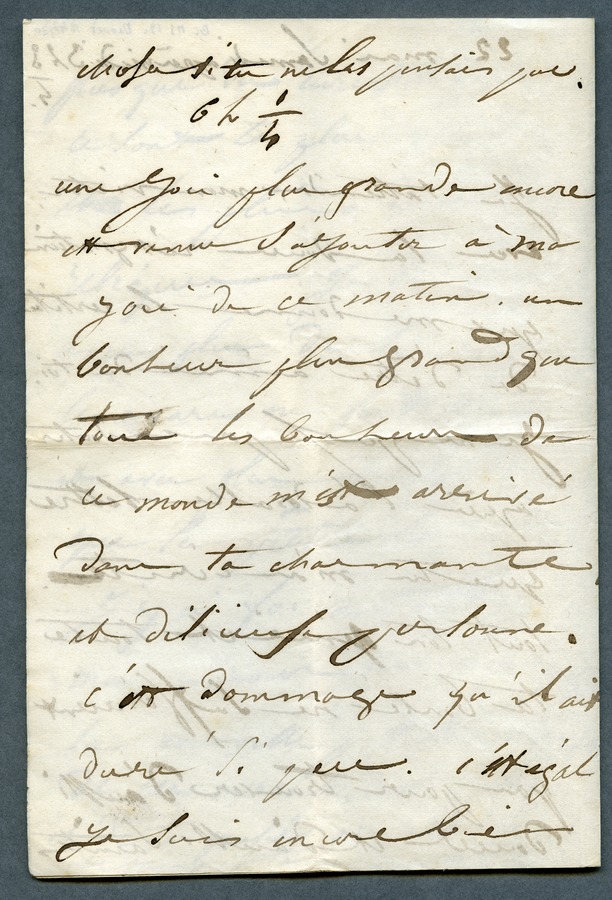 chose si tu ne les pensais pas.
6 h 1/4
une joie plus grande encore
est venue s'ajouter à ma
joie de ce matin. un
bonheur plus grand que
tous les bonheurs de
ce monde m'est arrivé
dans ta charmante
et délicieuse personne.
c'est dommage qu'il ait
duré si peu. c'est égal
je suis encore bien